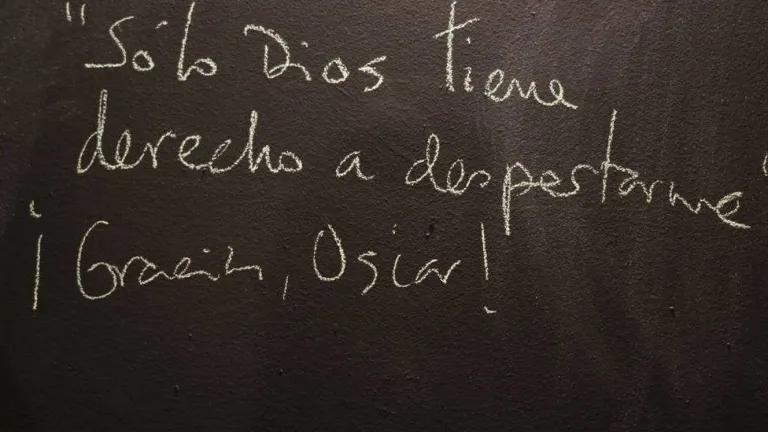 "Sólo Dios tiene
derecho a despertarme"
¡Gracias, Oscar!